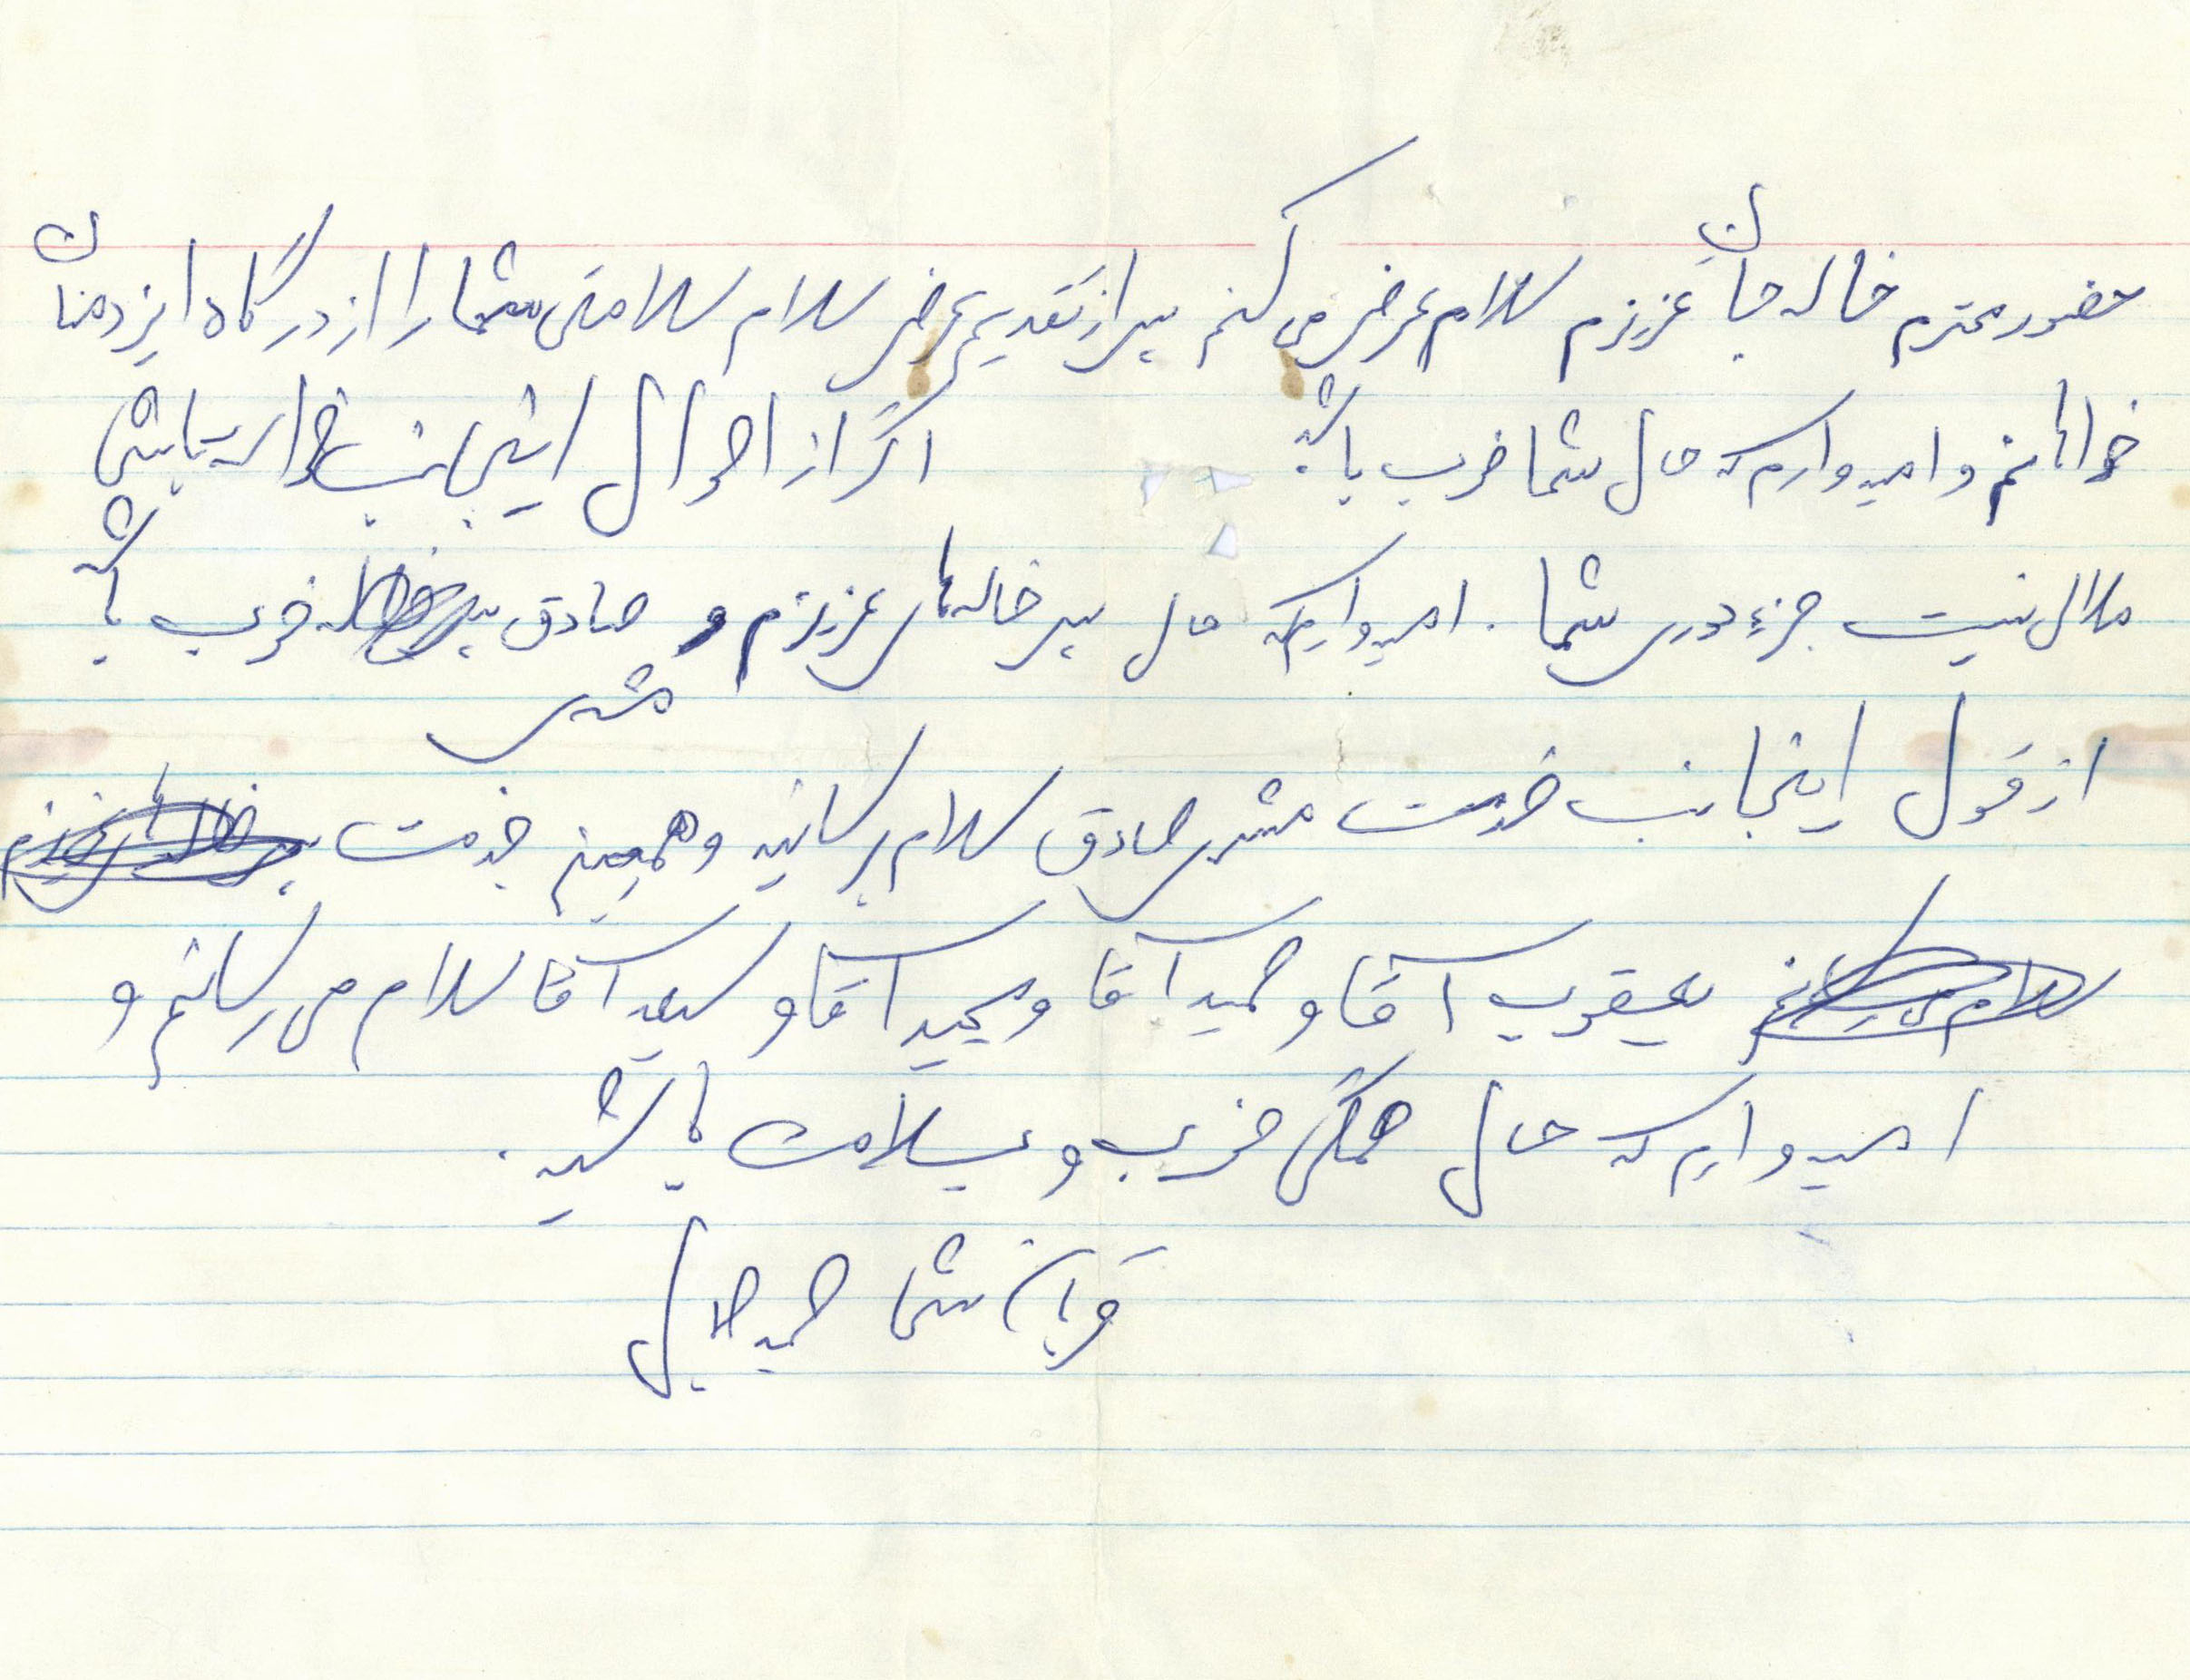 حضور محترم خاله جان عزیزم سلام عرض می کنم پس از تقدیم عرض سلام سلامتی شما را از درگاه ایزد منان
خواهانم و امیدوارم که حال شما خوب باشد. اگر از احوال اینجانب خواسته باشی
ملالی نیست جزء دوری شما . امیدوارم که حال پسر خاله های عزیزم و صادق خوب باشد
مشدی
از قول اینجانب خدمت مشدی صادق سلام برسانید و همچنین خدمت
یعقوب آقا و حمید آقا و مجید آقا و سعید آقا سلام می رسانم و
امیدوارم که حال همگی خوب و سلامت باشید .
قربان شما حمید